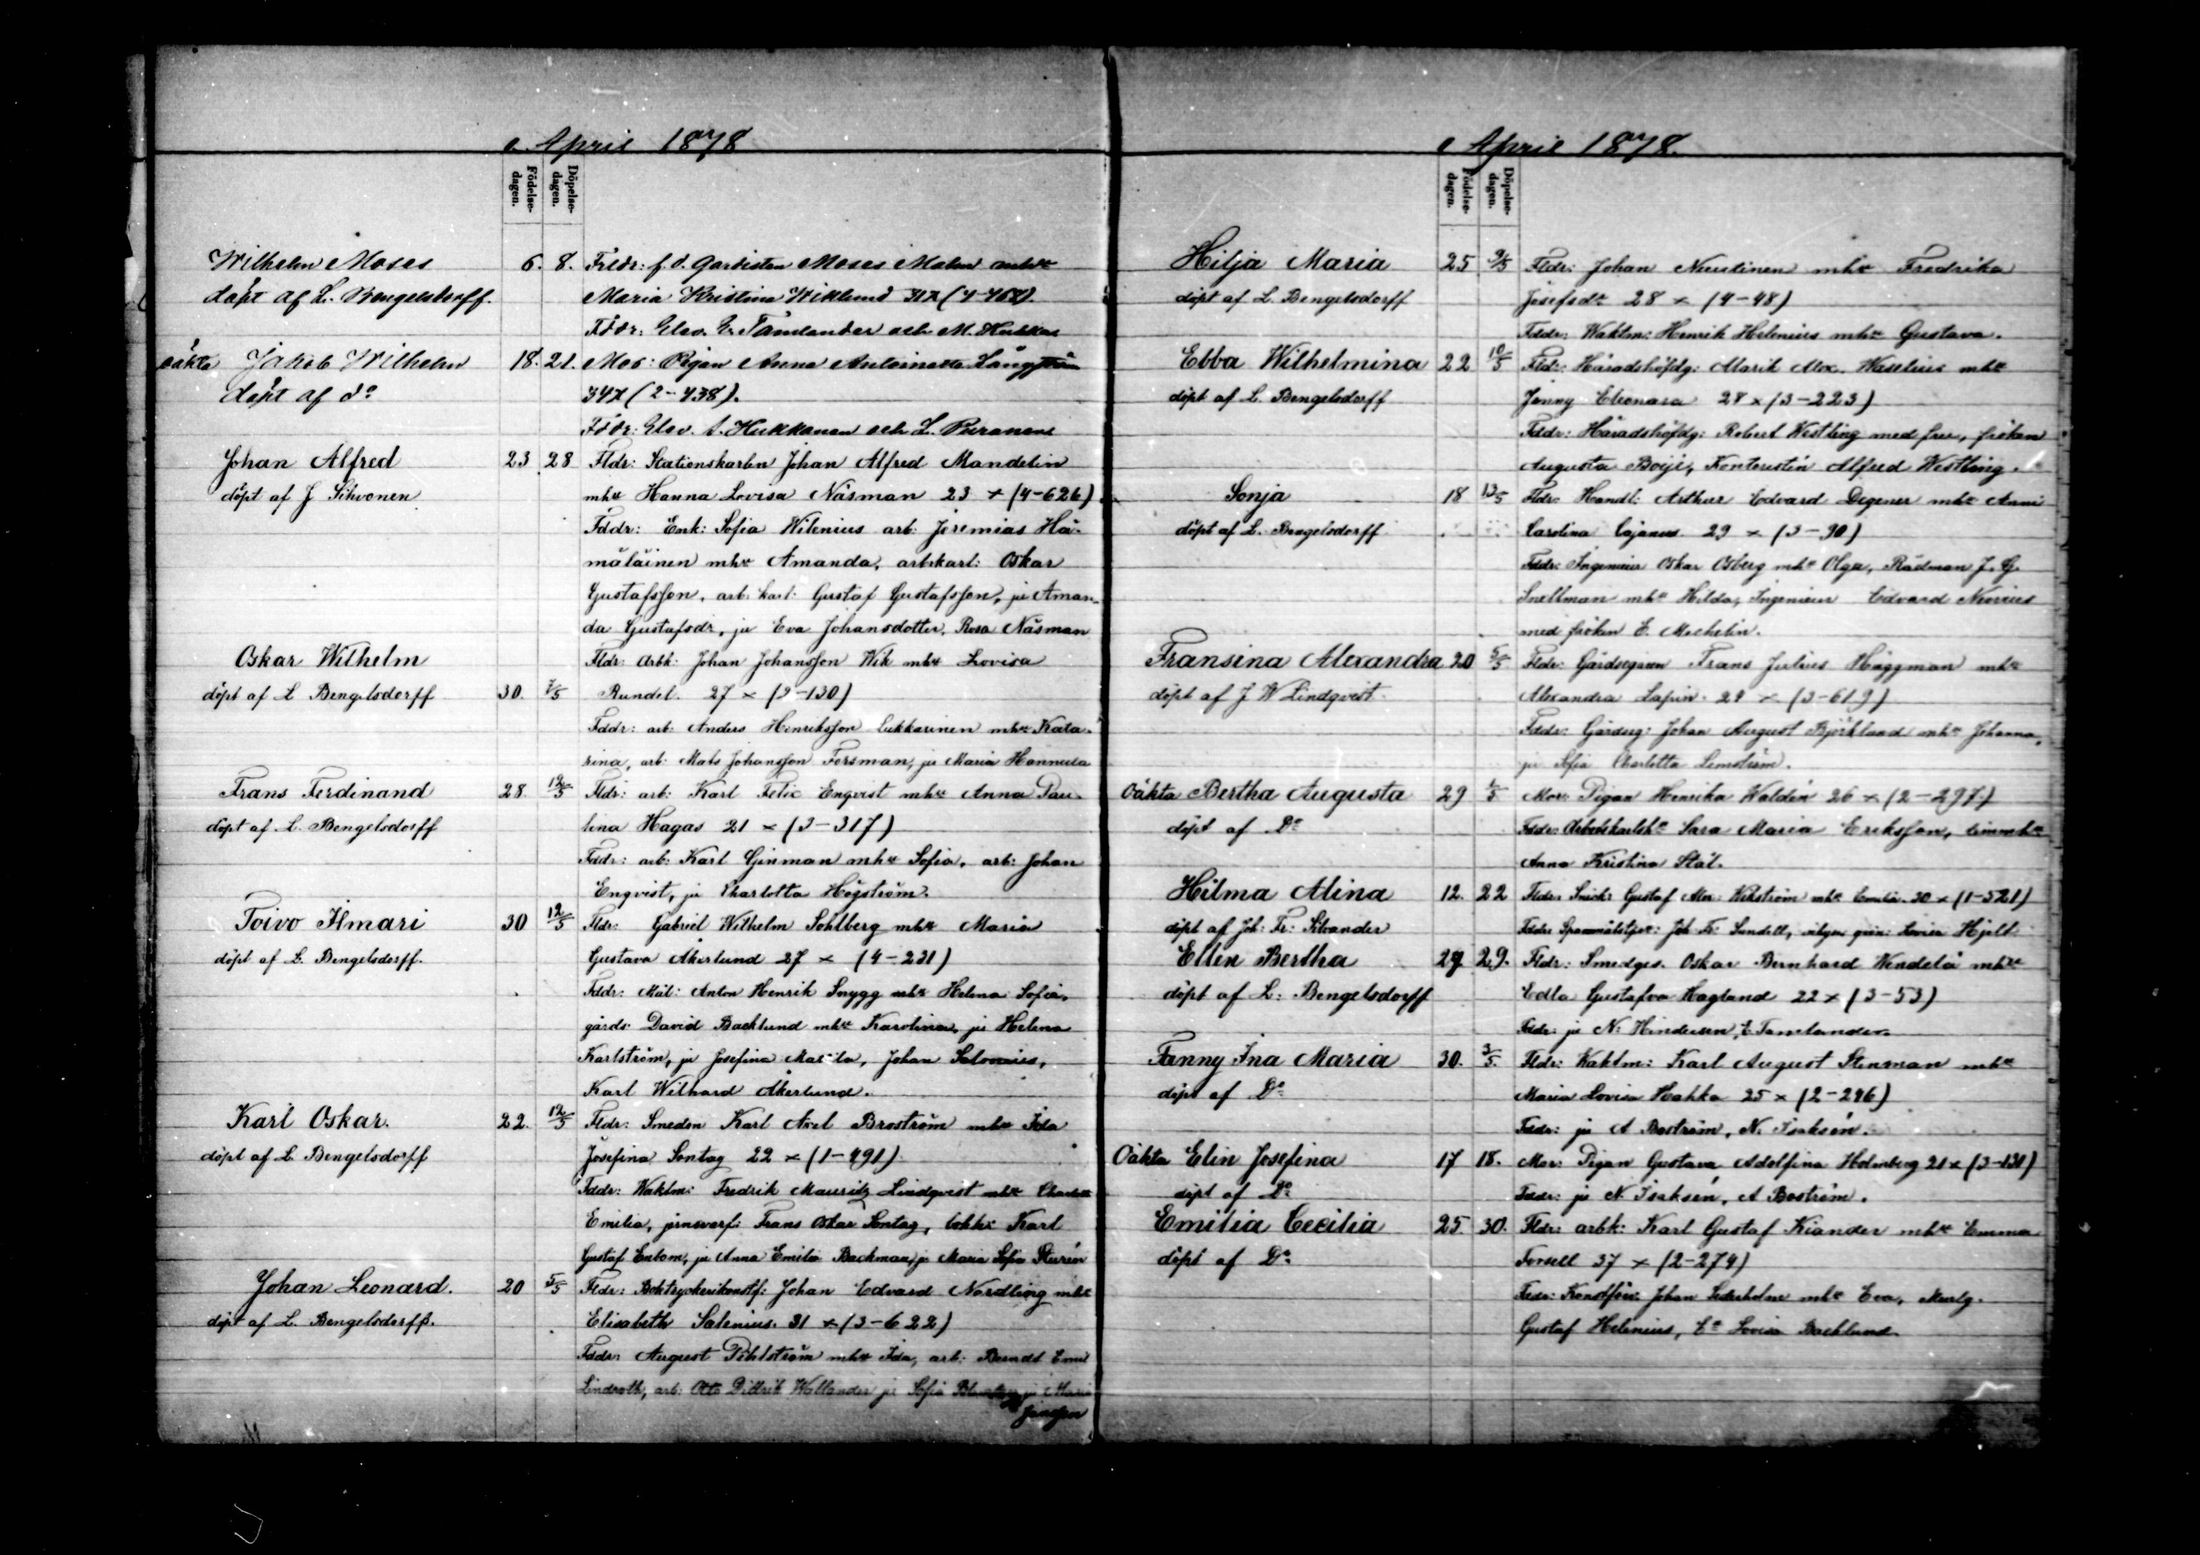 April 1878
Födelse-dagen.
Döpelse-dagen.
Wilhelm Moses 6. 8. Frldr: f. d. Gardisten Moses Malm mhu
döpt af L. Bengelsdorff. Maria Kristina Wiklund 31 x (4-462)
Fddr: Elev. Er. Tamlander och M. Hukka
oäkta Jakob Wilhelm 18. 21. Mor: Pigan Anna Antoinetta Långström
döpt af do 34 x (2-438).
Fddr: Elev. A. Hukkanen och L. Puranen
Johan Alfred 23 28 Fldr: Stationskarln Johan Alfred Mandelin
döpt af J Sihvonen mhu Hanna Lovisa Näsman 23 x (4-626)
Fddr: Enk: Sofia Wilenius arb: Jeremias Hä-
mäläinen mhu Amanda, arbtkarl: Oskar
Gustafsson, arb: karl: Gustaf Gustafsson, ju Aman-
da Gustafsdr, ju Eva Johansdotter, Rosa Näsman
Oskar Wilhelm Fldr: Arbk: Johan Johansson Wik mhu Lovisa
döpt af L Bengelsdorff 30. 7/5 Rundel. 27 x (3-130)
Fddr: arb: Anders Henriksson Lukkarinen mhu Kata-
rina, arb: Mats Johansson Forsman, ju Maria Hannula
Frans Ferdinand 28. 12/5 Fldr: arb: Karl Felix Enqvist mhu Anna Pau-
döpt af L. Bengelsdorff lina Hagas 21 x (3-317)
Fddr: arb: Karl Ginman mhu Sofia, arb: Johan
Enqvist, ju Charlotta Högström.
Toivo Ilmari 30 12/5 Fldr: Gabriel Wilhelm Sohlberg mhu Maria
döpt af L. Bengelsdorff. Gustava Åkerlund 27 x (4-231)
Fddr: Mål: Anton Henrik Snygg mhu Helena Sofia,
gårds: David Backlund mhu Karolina, ju Helena
Karlström, ju Josefina Johan Salovaius,
Karl Wilhard Åkerlund.
Karl Oskar. 22. 12/5 Fldr: Smeden Karl Axel Broström mhu Ida
döpt af L. Bengelsdorff Josefina Sontag 22 x (1-491)
Fddr: Waktm: Fredrik Mauritz Lindqvist mhu Charlotta
Emilia, jernvarf: Frans Oskar Sontag, Karl
Gustaf Enbom, ju Anna Emilia Backman, ju Maria Sofia Sturén
Johan Leonard. 20 5/5 Fldr: Boktryckerikonstf: Johan Edvard Nordling mhu
döpt af L. Bengelsdorff. Elisabeth Salenius. 31 x (3-622)
Fddr: August Pihlström mhu Ida, arb: Berndt Emil
Lindroth, arb: Otto Didrik Wallander ju Sofia ju Maria
Jansson
April 1878.
Födelse-dagen.
Döpelse-dagen.
Hilja Maria 25 9/5 Fldr: Johan Nuutinen mhu Fredrika
döpt af L. Bengelsdorff Josefsdr 28 x (4-48)
Fddr: Waktm: Henrik Helenius mhu Gustava.
Ebba Wilhelmina 22 10/5 Fldr: Häradshöfdg: Marik Alex. Waselius mhu
döpt af L. Bengelsdorff Jenny Eleonora 28 x (3-223)
Fddr: Häradshöfdg: Robert Westling med fru, fröken
Augusta Boije, Kontoristén Alfred Westling.
Sonja 18 13/5 Fldr: Handl: Arthur Edvard Degener mhu Anni
döpt af L. Bengelsdorff. Carolina Cajanus. 29 x (3-90)
Fddr: Ingeniör Oskar Osberg mhu Olga, Rådman J. G.
Snellman mhu Hilda, Ingeniör Edvard Neovius
med fröken E. Mechelin.
Fransina Alexandra 20 5/5 Fldr: Gårdsegaren Frans Julius Häggman mhu
döpt af J W Lindqvist. Alexandra Lapin. 29 x (3-619)
Fddr: Gårdseg: Johan August Björklund mhu Johanna,
ju Sofia Charlotta Lemström.
Oäkta Bertha Augusta 29 /5 Mor: Pigan Henrika Waldén 26 x (2-297)
döpt af Do Fddr: Arbetskarlsh: Sara Maria Eriksson, timmh:
Anna Kristina Stål.
Hilma Alina 12. 22 Fldr: Snick: Gustaf Alex: Wikström mhu Emilia. 30 x (1-521)
döpt af Joh: Fr: Silvander Fddr: Joh Fr: Sundell, Lovisa Hjelt.
Ellen Bertha 29 29. Fldr: Smedges. Oskar Bernhard Wendelä mhu
döpt af L. Bengelsdorff Edla Gustafva Haglund 22 x (3-53)
Fddr: ju N. Hindersen, E Tamelander.
Fanny Ina Maria 30. 3/5. Fldr: Waktm: Karl August Stenman mhu
döpt af Do Maria Lovisa Hahka 25 x (2-296)
Fddr: ju A Boström, N. Isaksén.
Oäkta Elin Josefina 17 18. Mor: Pigan Gustava Adolfina Holmberg 21 x (3-131)
döpt af Do Fddr: ju N. Isaksén, A Boström.
Emilia Cecilia 25. 30. Fldr: arbk: Karl Gustaf Kiander mhu Emma
döpt af Do Forsell 37 x (2-274)
Fddr: Konstför: Johan Sederholm mhu Eva, Murlg.
Gustaf Helenius, Lovisa Backlund.